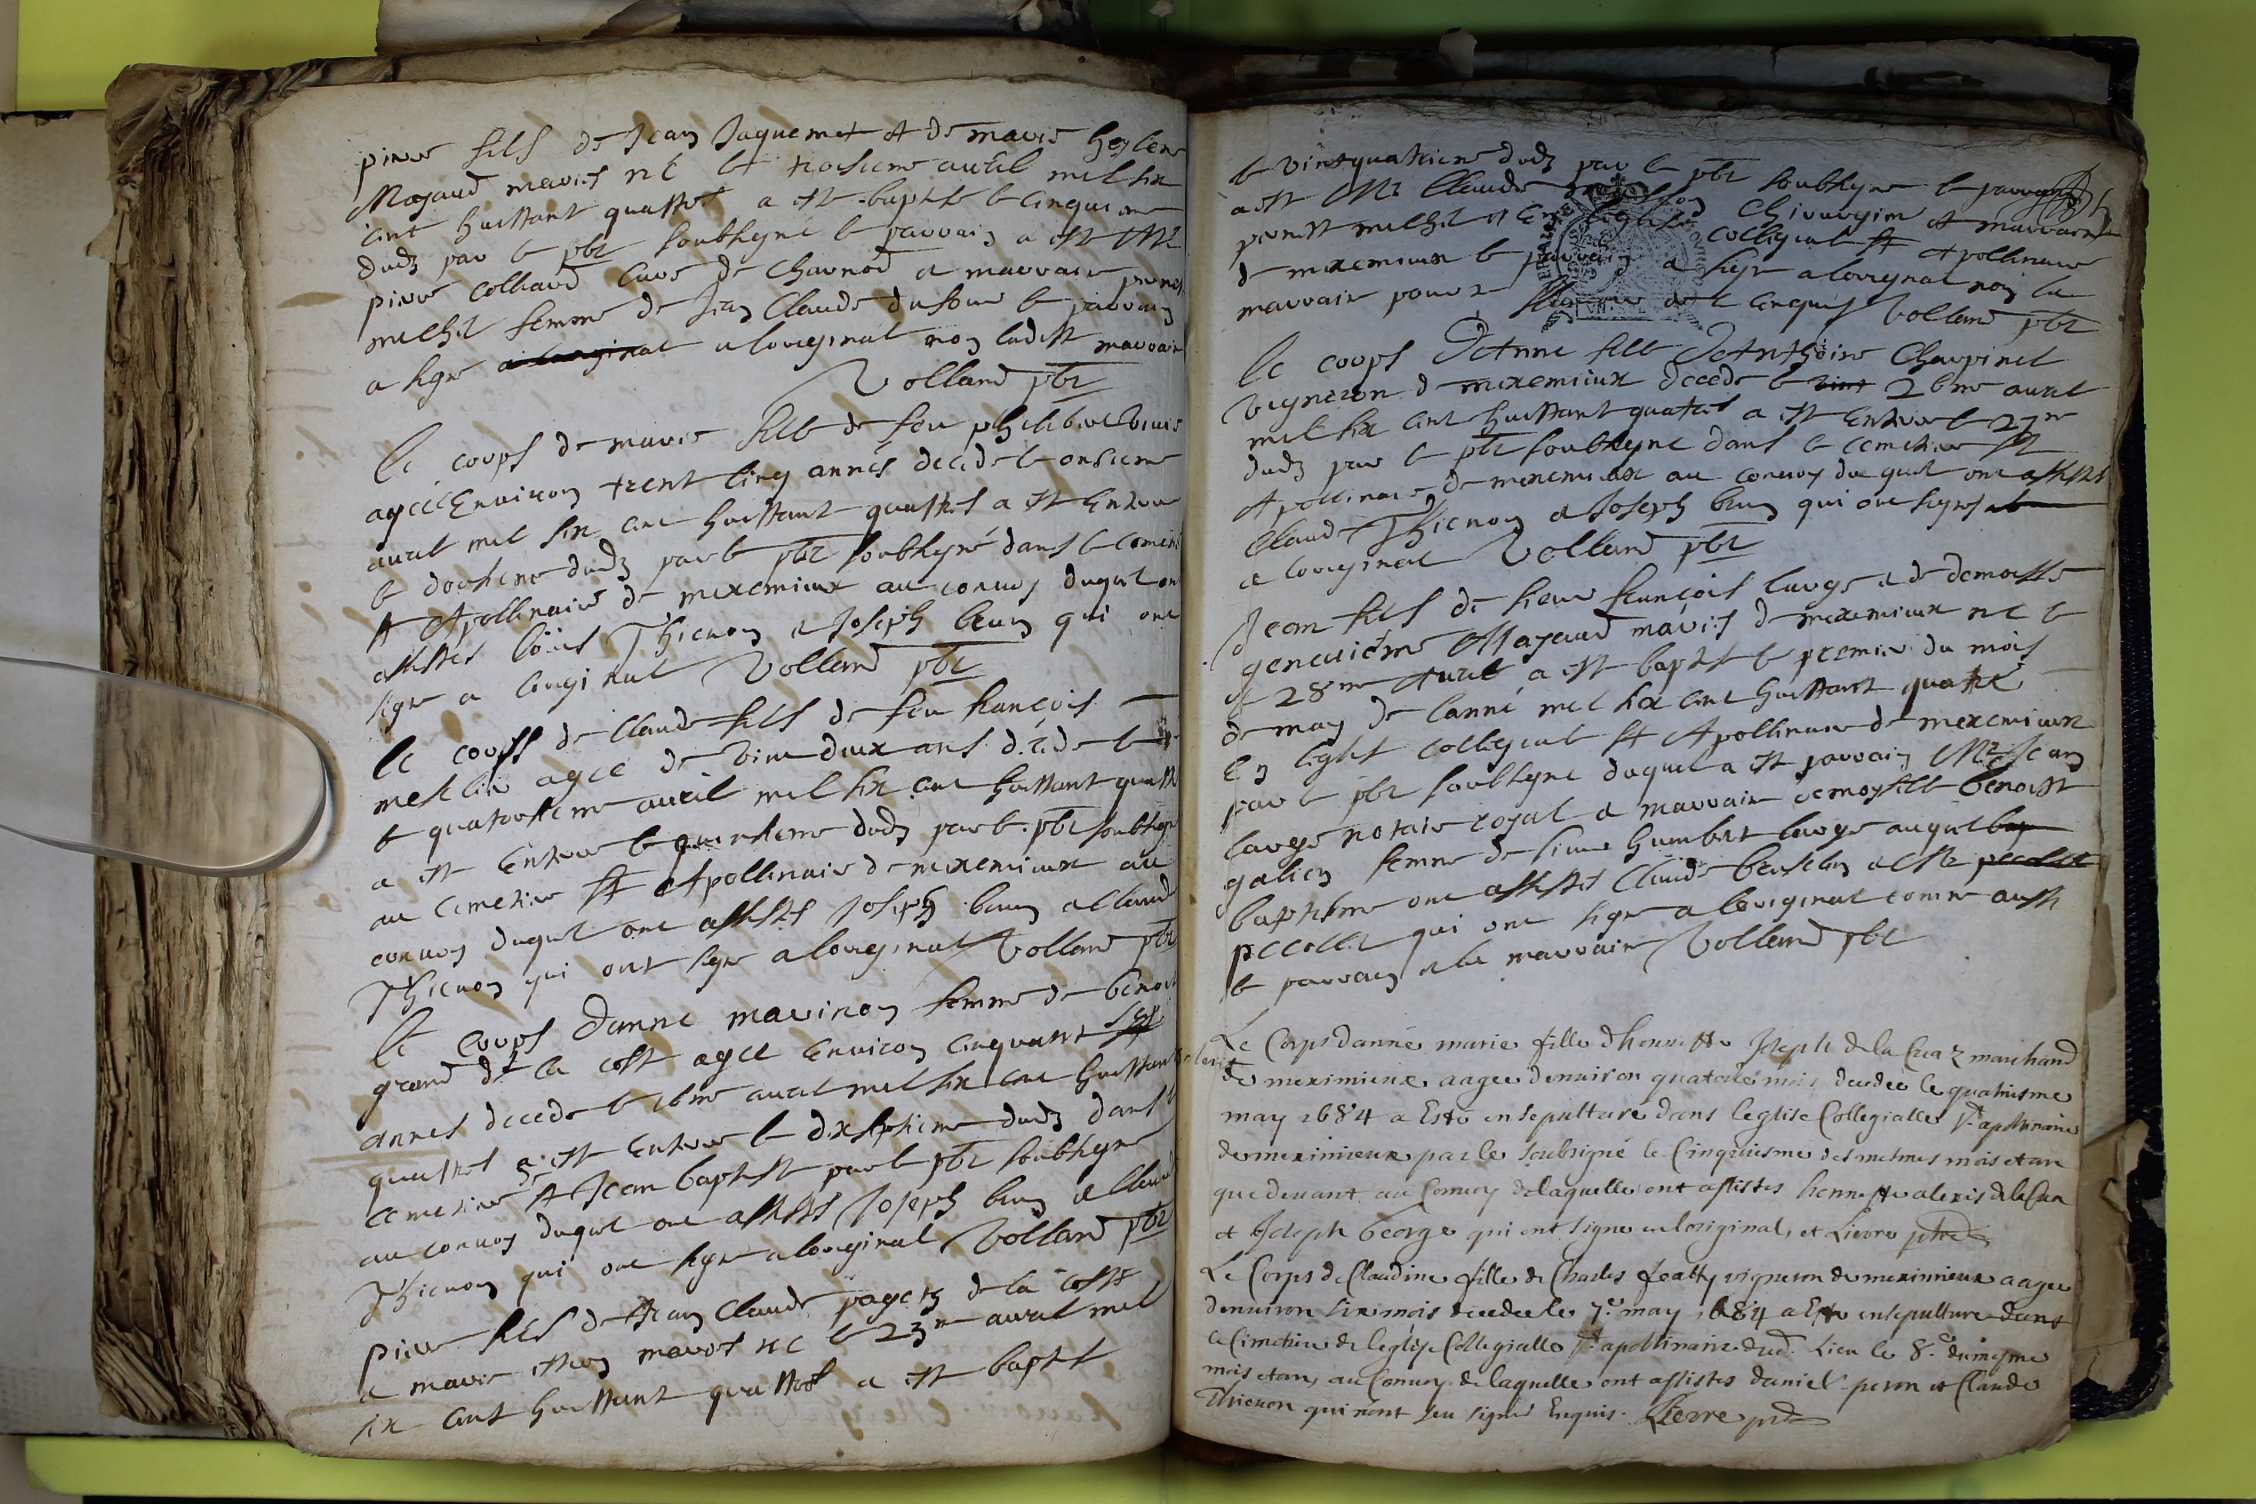 pierre fils de Jean Jaquemet et de marie heslene
Mayaud mariés né le troisieme avril mil six
cent huittant quattre a esté baptisé le cinquieme
dudt par le pbr soubsigné le parrain a esté Mr
pierre colliard curé de Charnod et marraine pernet
michel femme de Jean Claude dufour le parrain
a signé a l'original non laditte marraine
Volland pbr
Le corps de marie fille de feu philibert
agée Environ trent cinq années decedé le onzieme
avril mil six cent huittant quattre a esté Enterré
le douzieme dudt par le pbr soubsigné dans le cimetiere
St Apollinaire de meximieux au convoy duquel ont
assistés Loüis Thienon et Joseph brun qui ont
signé a l'original Volland pbr
Le corps de Claude fils de feu francois
mestlié agée de vint deux ans decedé le
le quatorzieme avril mil six cent huittant quattre
a esté Enterré le quinzieme dudt par le pbr soubsigné
au cimetiere St Apollinaire de meximieux au
convoy duquel ont assistés Joseph brun et Claude
Thienon qui ont signé a l'original Volland pbr
Le corps d'anne marinon femme de benoit
grand de la coste agée Environ cinquante
années decedé le 16me avril mil six cent huittant
quattre a esté Enterré le dixseptieme dudt dans le
cemetiere St Jean baptiste par le pbr soubsigné
au convoy duquel ont assistés Joseph brun et Claude
Thienon qui ont signé a l'original Volland pbr
pierre fils de Jean Claude pagets de la coste
et marie mariés né le 23me avril mil
six cent huittant quattre a esté baptisé
le vintquatrieme dudt par le pbr soubsigné le parrain
a esté Mr Claude Chirurgien et marraine
pernette michel et En l'eglise collegiale St Apollinaire
de meximieux le parrain a signé a l'original non la
marraine pour ne enquis Volland pbr
Le corps d'Anne fille d'Anthoine Charpinel
vigneron de meximieux decedé le 26me avril
mil six cent huittant quattre a esté Enterré le 27me
dudt par le pbr soubsigné dans le cemetiere St
Apollinaire de meximieux au convoy duquel ont assistés
Claude Thienon et Joseph brun qui ont signés
a l'original Volland pbr
Jean fils de sieur françois large et de demoiselle
genevieme Mayaud mariés de meximieux né le
28me Avril a esté baptisé le premier du mois
de may de l'anné mil six cent huittant quattre
En l'eglise collegiale St Apollinaire de meximieux
par le pbr soubsigné duquel a esté parrain Mr Jean
large notaire royal et marraine demoyselle benoiste
galien femme de sieur humbert large auquel
baptesme ont assistés Claude berselin et Mr
pecollet qui ont signé a l'original comme aussi
le parrain et la marraine Volland pbr
Le Corps d'anne marie fille d'honneste Joseph de la Cruaz marchand
de meximieux aagee denuiron quatorze mois decedee le quatriesme
may 1684 a Esté ensepulturé dans l'eglise Collegialle St apollinaire
de meximieux par le soubsigné le Cinquiesme des mesmes mois et an
que deuant au Conuoy de laquelle ont assistés honneste alexis de la Cruaz
et Joseph George qui ont signé a l'original, et Lievre ptre
Le Corps de Claudine fille de Charles vigneron de meximieux aagee
denuiron six mois decedee le 7e may 1684 a Esté ensepulturé dans
le Cimetiere de l'eglise Collegialle St apollinaire dud. Lieu le 8e du mesme
mois et an, au Conuoy de laquelle ont assistés daniel peron et Claude
Thienon qui n'ont sceu signer Enquis. Lievre ptre